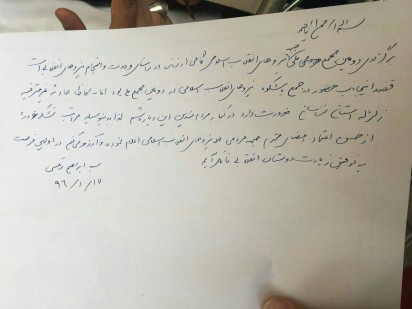 بسم الله الرحمن الرحیم
برگزاری دومین مجمع جبهه مردمی نیروهای انقلاب اسلامی گامی ارزنده در راستای وحدت و انسجام نیروهای انقلابی است
قصد اینجانب حضور در جمع باشکوه نیروهای انقلاب اسلامی در دومین مجمع ملی بود اما به لحاظ حادثه غیرمترقبه
زلزله استان خراسان ضرورت دارد در کنار مردم متدین این دیار باشم لذا بدینوسیله مراتب تشکر خود را
از حسن اعتماد اعضای محترم جبهه مردمی نیروهای انقلاب اسلامی اعلام نموده و آرزو می‌کنم در اولین فرصت
به توفیق زیارت دوستان انقلابی نائل آیم
سید ابراهیم رئیسی
۹۶/۱/۱۷